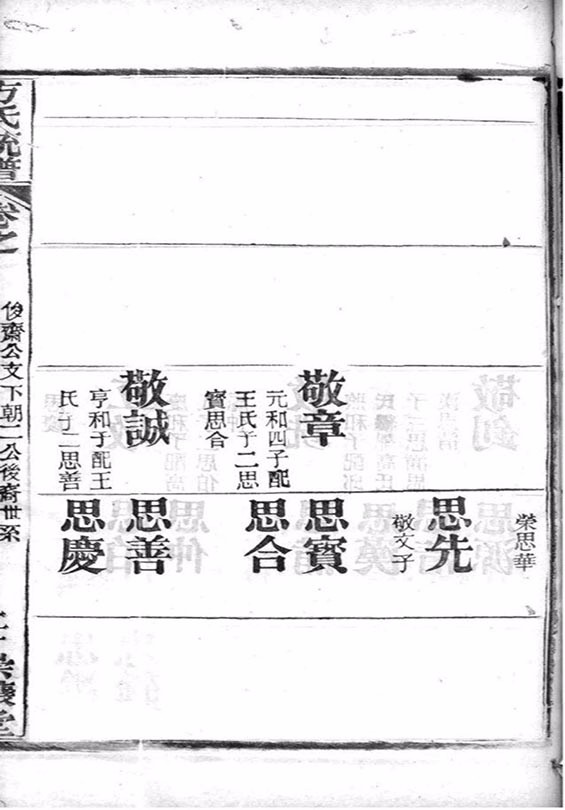 榮思華
思先
敬文子
敬章
元和四子配
王氏子二思
賓思合
思賓
思合
敬誠
亨和子配王
氏子二思善
思善
思慶
方氏統譜
卷之
俊齋公文下朝二公後裔世系